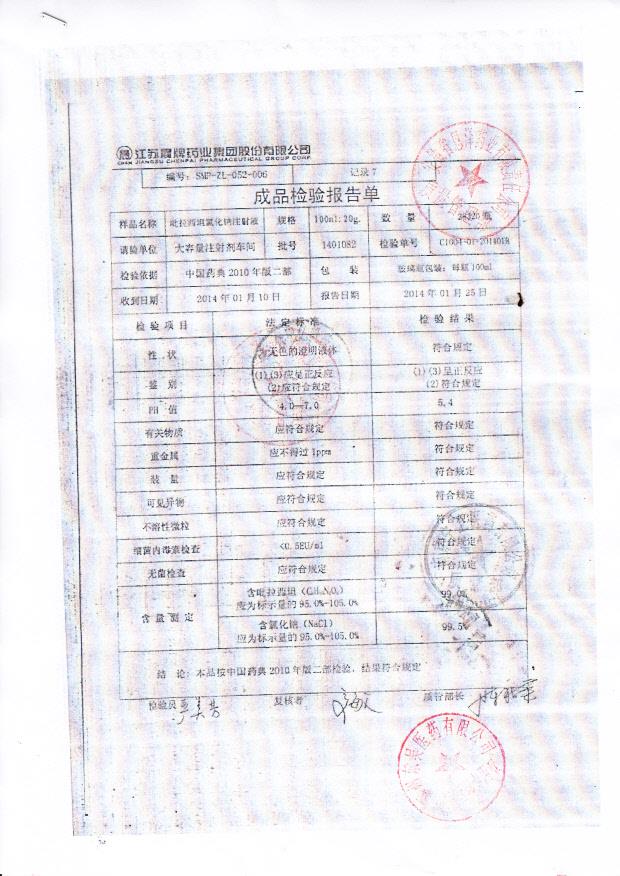 江苏晨牌药业集团股份有限公司
CHEN JIANGSU CHENPAI PHARMACEUTICAL GROUP CORP.
编号：SMP-ZL-052-006 记录7
成品检验报告单
样品名称 吡拉西坦氯化钠注射液 规格 100ml:20g. 数量 28320瓶
请验单位 大容量注射剂车间 批号 1401082 检验单号
检验依据 中国药典2010年版二部 包装 玻璃瓶包装：每瓶100ml
收到日期 2014年01月10日 报告日期 2014年01月25日
检验项目 法定标准 检验结果
性状 为无色的澄明液体 符合规定
鉴别 (1)(3)应呈正反应 (1)(3)呈正反应
(2)应符合规定 (2)符合规定
PH值 4.0—7.0 5.4
有关物质 应符合规定 符合规定
重金属 应不得过1ppm 符合规定
装量 应符合规定 符合规定
可见异物 应符合规定 符合规定
不溶性微粒 应符合规定 符合规定
细菌内毒素检查 <0.5EU/ml 符合规定
无菌检查 应符合规定 符合规定
含量测定 含吡拉西坦 99.0%
应为标示量的95.0%-105.0%
含氯化钠（NaCl） 99.5%
应为标示量的95.0%-105.0%
结论：本品按中国药典2010年版二部检验，结果符合规定
检验员 复核者 质管部长
医药有限公司